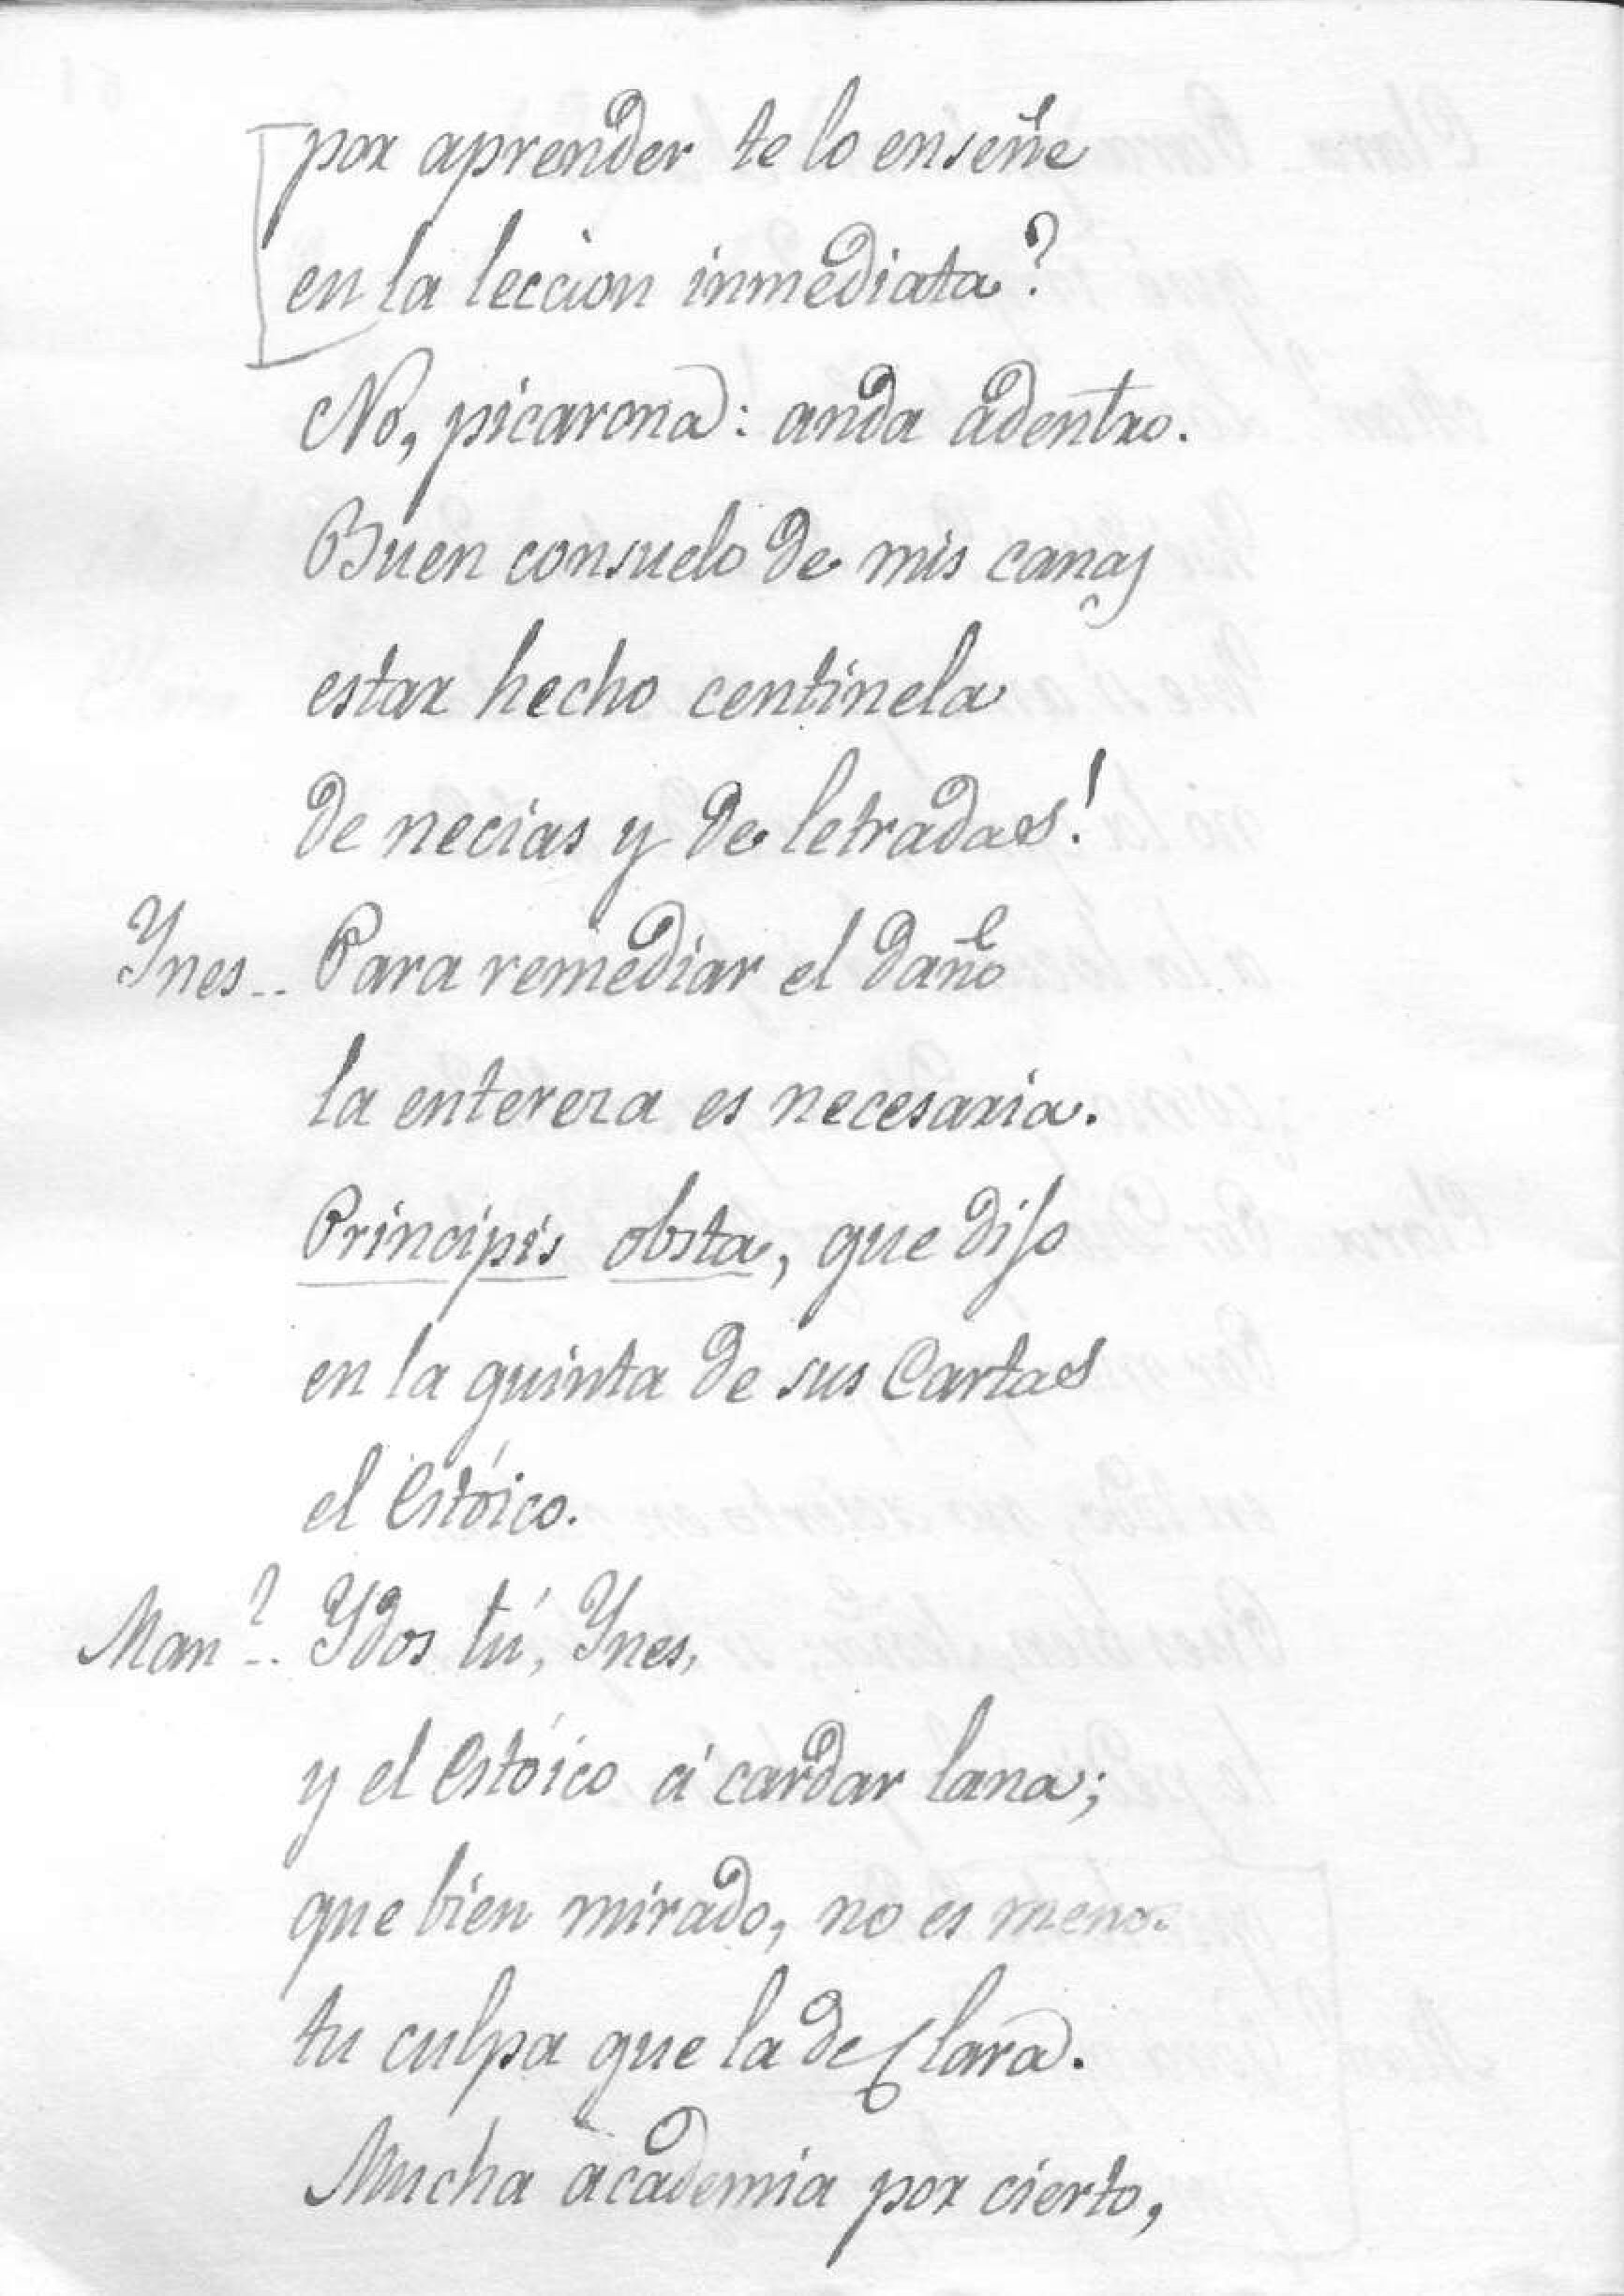 por aprender te lo enseñe
en la leccion inmediata?
No, picarona: anda adentro.
Buen consuelo de mis canas
estar hecho centinela
de necias y de letradas!
Ynes.. Para remediar el daño
la entereza es necesaria.
Principis obsta, que dijo
en la quinta de sus Cartas
el Estóico.
Man.l.. Ydos tú, Ynes,
y el Estóico á cardar lana;
que bien mirado, no es menor
tu culpa que la de Clara.
Mucha academia por cierto,